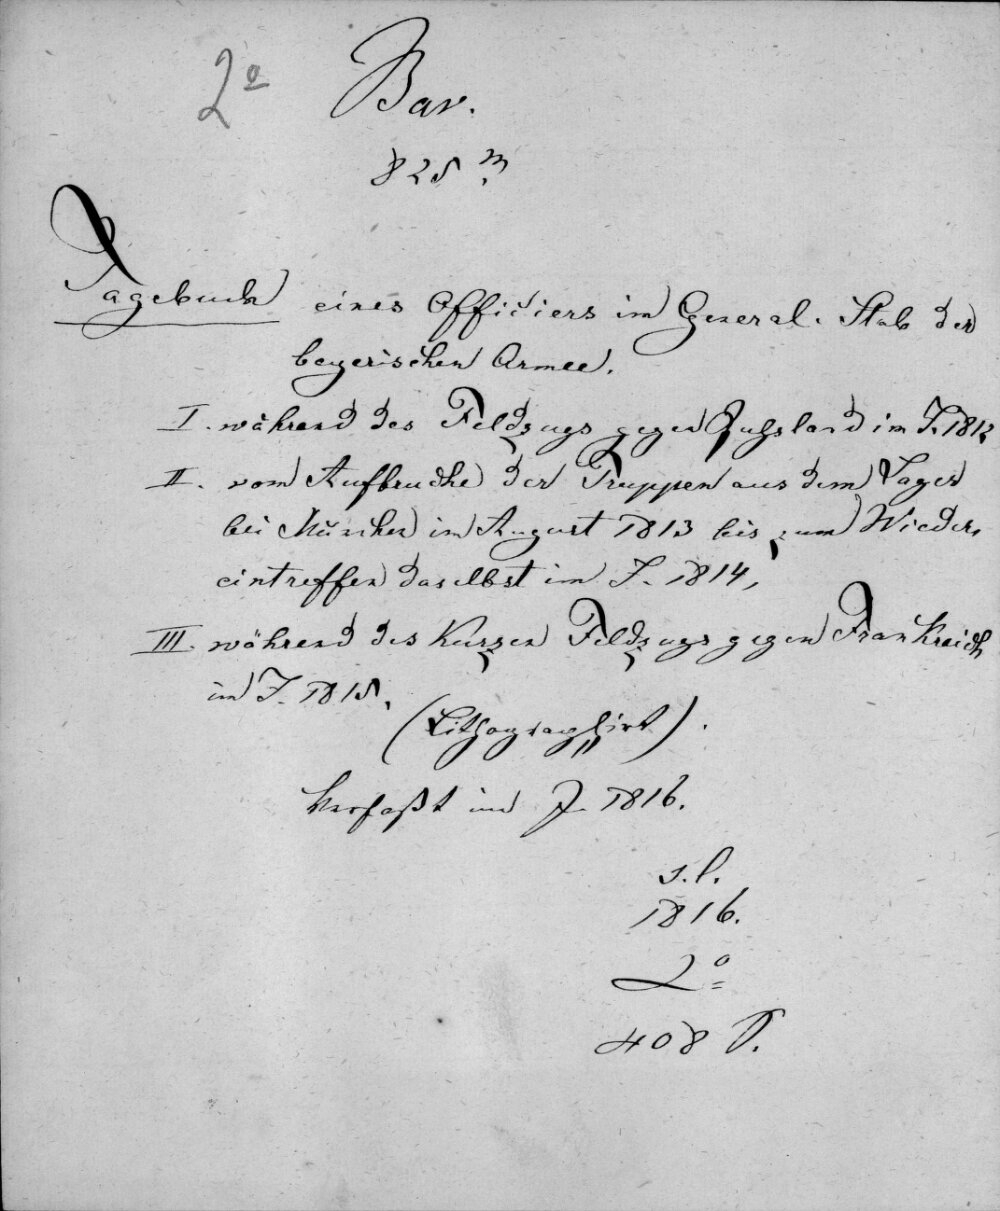 2º Bav.
825 m.
Tagebuch eines Officiers im General-Stab der
bayerischen Armee.
I. während des Feldzugs gegen Rußland im J. 1812
II. vom Aufbruche der Truppen aus dem Lager
bei München im August 1813 bis zum Wieder-
eintreffen daselbst im J. 1814,
III. während des kurzen Feldzugs gegen Frankreich
im J. 1815.
(Lithographirt).
Verfaßt im J. 1816.
s.l.
1816.
2º
408 S.